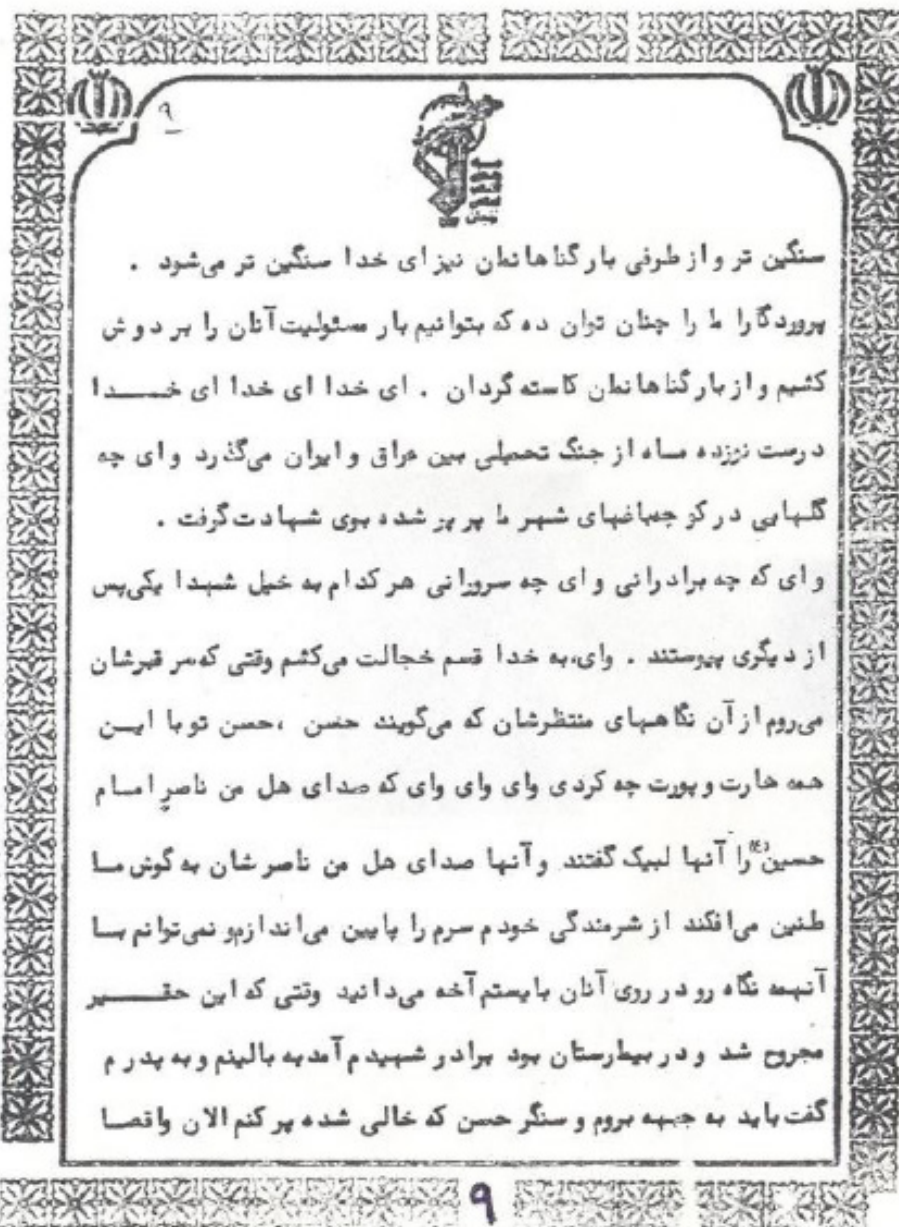 ۹
سنگین تر و از طرفی بار گناهانمان نیز ای خدا سنگین تر می‌شود .
پروردگارا ما را چنان توان ده که بتوانیم بار مسئولیت آنان را بر دوش
کشیم و از بار گناهانمان کاسته گردان . ای خدا ای خدا ای خـــدا
درست نوزده ماه از جنگ تحمیلی بین عراق و ایران می‌گذرد وای چه
گلهایی در کوچه‌باغهای شهر ما پر پر شده بوی شهادت گرفت .
وای که چه برادرانی وای چه سرورانی هر کدام به خیل شهدا یکی پس
از دیگری پیوستند . وای، به خدا قسم خجالت می‌کشم وقتی که سر قبرشان
می‌روم از آن نگاههای منتظرشان که می‌گویند حسن ،حسن تو با ایـــن
همه هارت و پورت چه کردی وای وای وای که صدای هل من ناصرِ امام
حسین(ع) را آنها لبیک گفتند و آنها صدای هل من ناصرشان به گوش مــا
طنین می‌افکند از شرمندگی خودم سرم را پایین می‌اندازم و نمی‌توانم بــا
آنهمه نگاه رو در روی آنان بایستم آخه می‌دانید وقتی که این حقـــیر
مجروح شد و در بیمارستان بود برادر شهیدم آمد به بالینم و به پدرم
گفت باید به جبهه بروم و سنگر حسن که خالی شده پر کنم الان واقعــا
۹